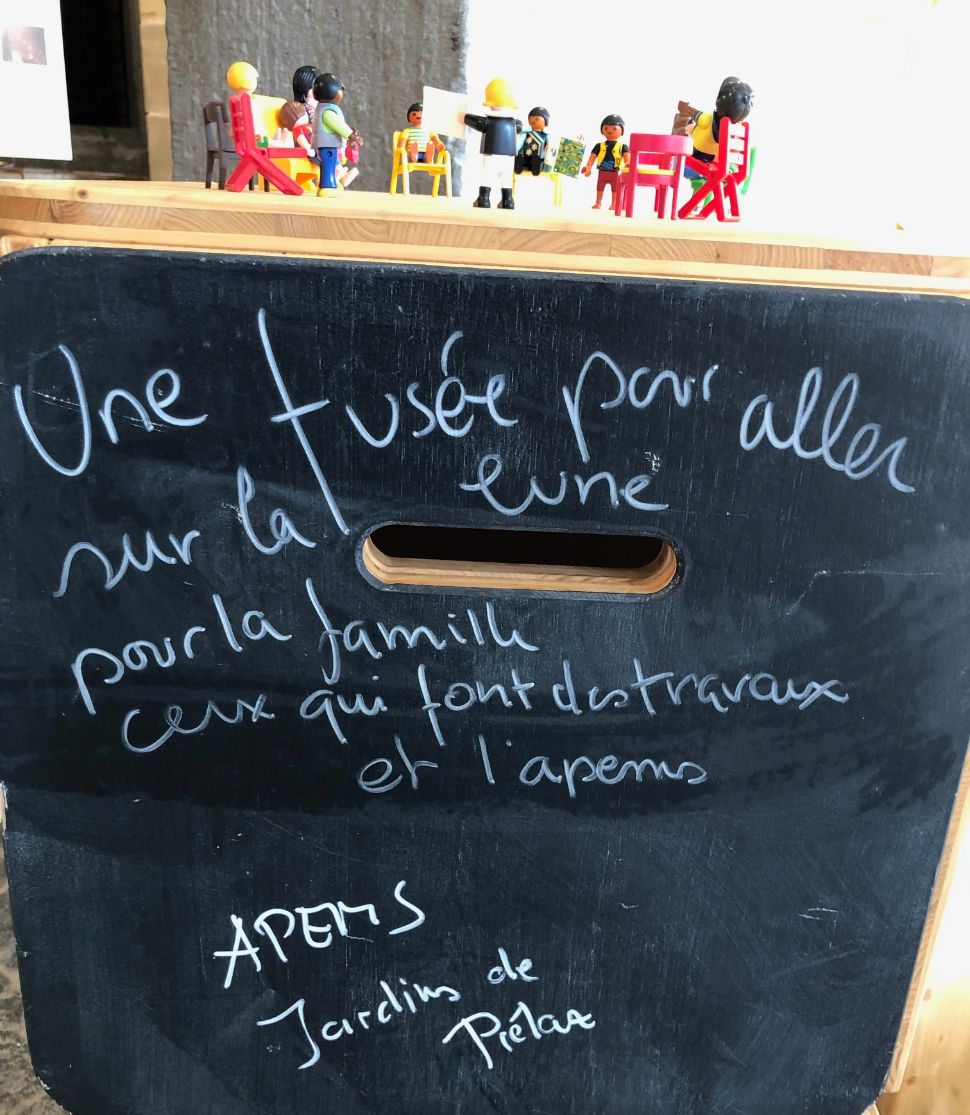 Une fusée pour aller
sur la lune
pour la famille
ceux qui font des travaux
et l'apems
APEMS
Jardins de
Prélaz